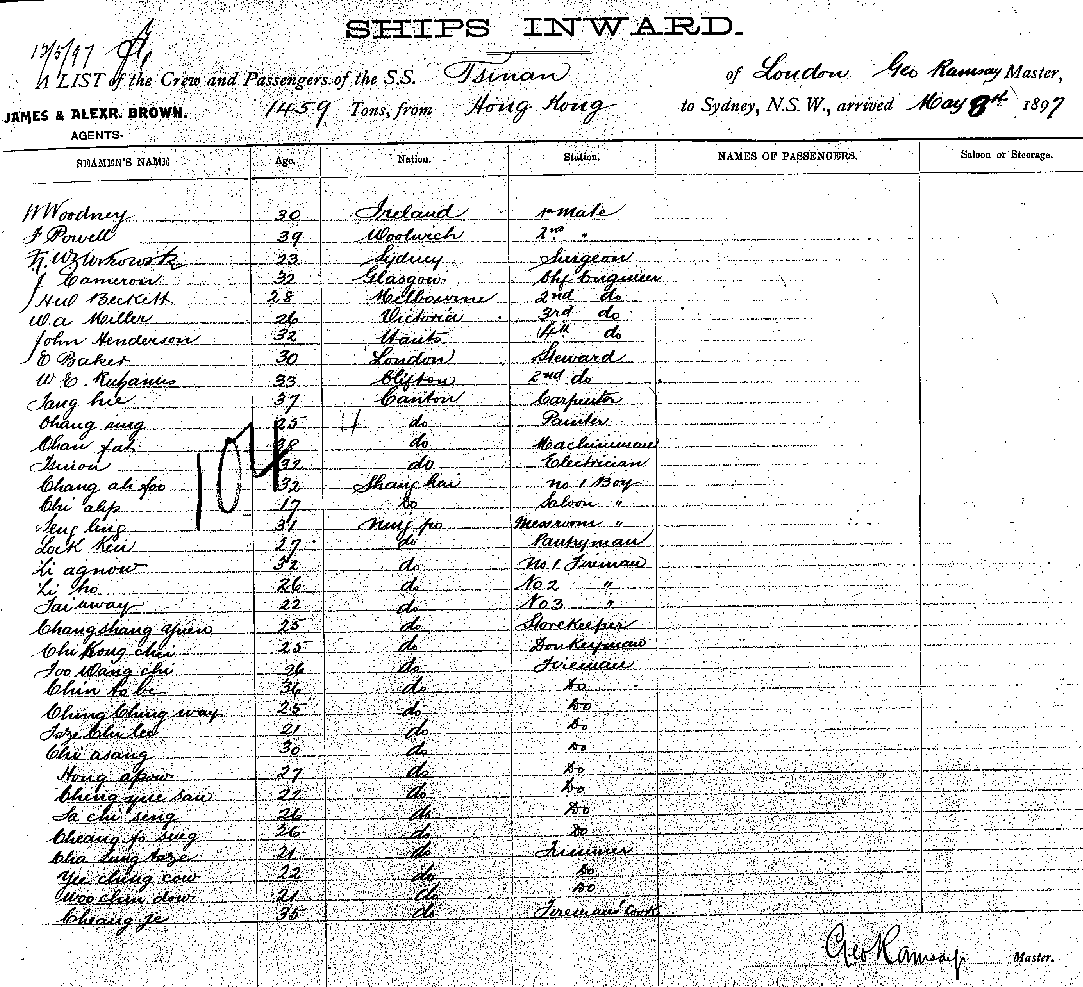 SHIPS INWARD.
12/5/97
A LIST of the Crew and Passengers of the S.S. Tsinan of London Geo Ramsay Master,
JAMES & ALEXR. BROWN. 1459 Tons, from Hong Kong to Sydney, N.S.W., arrived May 8th 1897
AGENTS.
SEAMEN'S NAME Age. Nation. Station. NAMES OF PASSENGERS. Saloon or Steerage.
W Woodney 30 Ireland 1st Mate
F Powell 39 Woolwich 2nd "
23 Sydney Surgeon
J Cameron 32 Glasgow Chf Engineer
H W Beckett 28 Melbourne 2nd do
W A Miller 26 Victoria 3rd do
John Henderson 32 Hants 4th do
E Baker 30 London Steward
W E. 33 Clifton 2nd do
37 Canton Carpenter
Chang 25 do Painter
Chan fat 28 do Machineman
32 do Electrician
104
Chang ah foo 32 Shanghai No 1 Boy
Chi 17 Do Saloon "
ling 31 Ning po Messroom "
Lock Ken 27 do Pantryman
Li agnow 32 do No 1 Fireman
Li ho 26 do No 2 "
Tai away 22 do No 3 "
Chang shang yuen 25 do Storekeeper
Chi Kong chu 25 do Donkeyman
Too Wang chi 36 do Fireman
Chin 36 do Do
Ching Ching way 25 do Do
21 do Do
Chi asang 30 do Do
Hong apow 27 do Do
Ching yue san 22 do Do
Sa chi seng 26 do Do
Cheang fo 26 do Do
Cha Lung 21 do Trimmer
Yee ching cow 22 do Do
Woo chin dow 21 do Do
Cheang 35 do Firemans' Cook
Geo Ramsay Master.